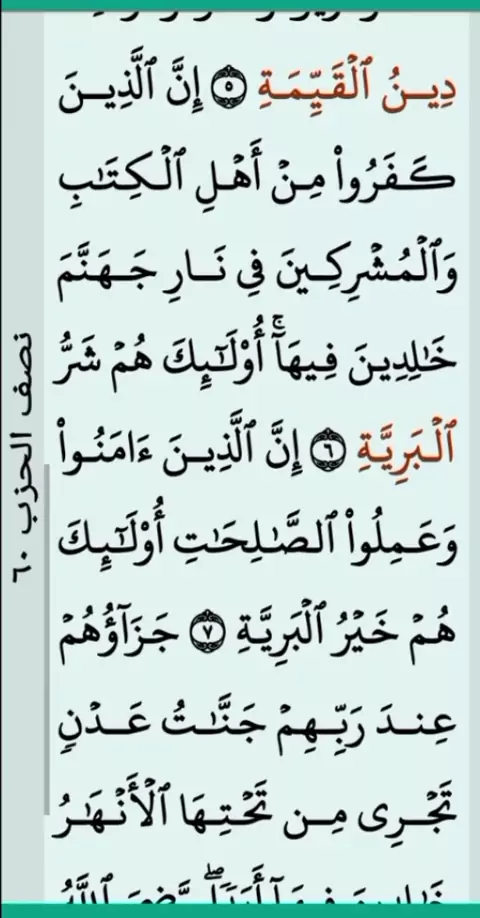 دِينُ ٱلْقَيِّمَةِ ٥ إِنَّ ٱلَّذِينَ
كَفَرُوا۟ مِنْ أَهْلِ ٱلْكِتَٰبِ
وَٱلْمُشْرِكِينَ فِى نَارِ جَهَنَّمَ
خَٰلِدِينَ فِيهَآ ۚ أُو۟لَٰٓئِكَ هُمْ شَرُّ
ٱلْبَرِيَّةِ ٦ إِنَّ ٱلَّذِينَ ءَامَنُوا۟
وَعَمِلُوا۟ ٱلصَّٰلِحَٰتِ أُو۟لَٰٓئِكَ
هُمْ خَيْرُ ٱلْبَرِيَّةِ ٧ جَزَآؤُهُمْ
عِندَ رَبِّهِمْ جَنَّٰتُ عَدْنٍ
تَجْرِى مِن تَحْتِهَا ٱلْأَنْهَٰرُ
نصف الحزب ٦٠